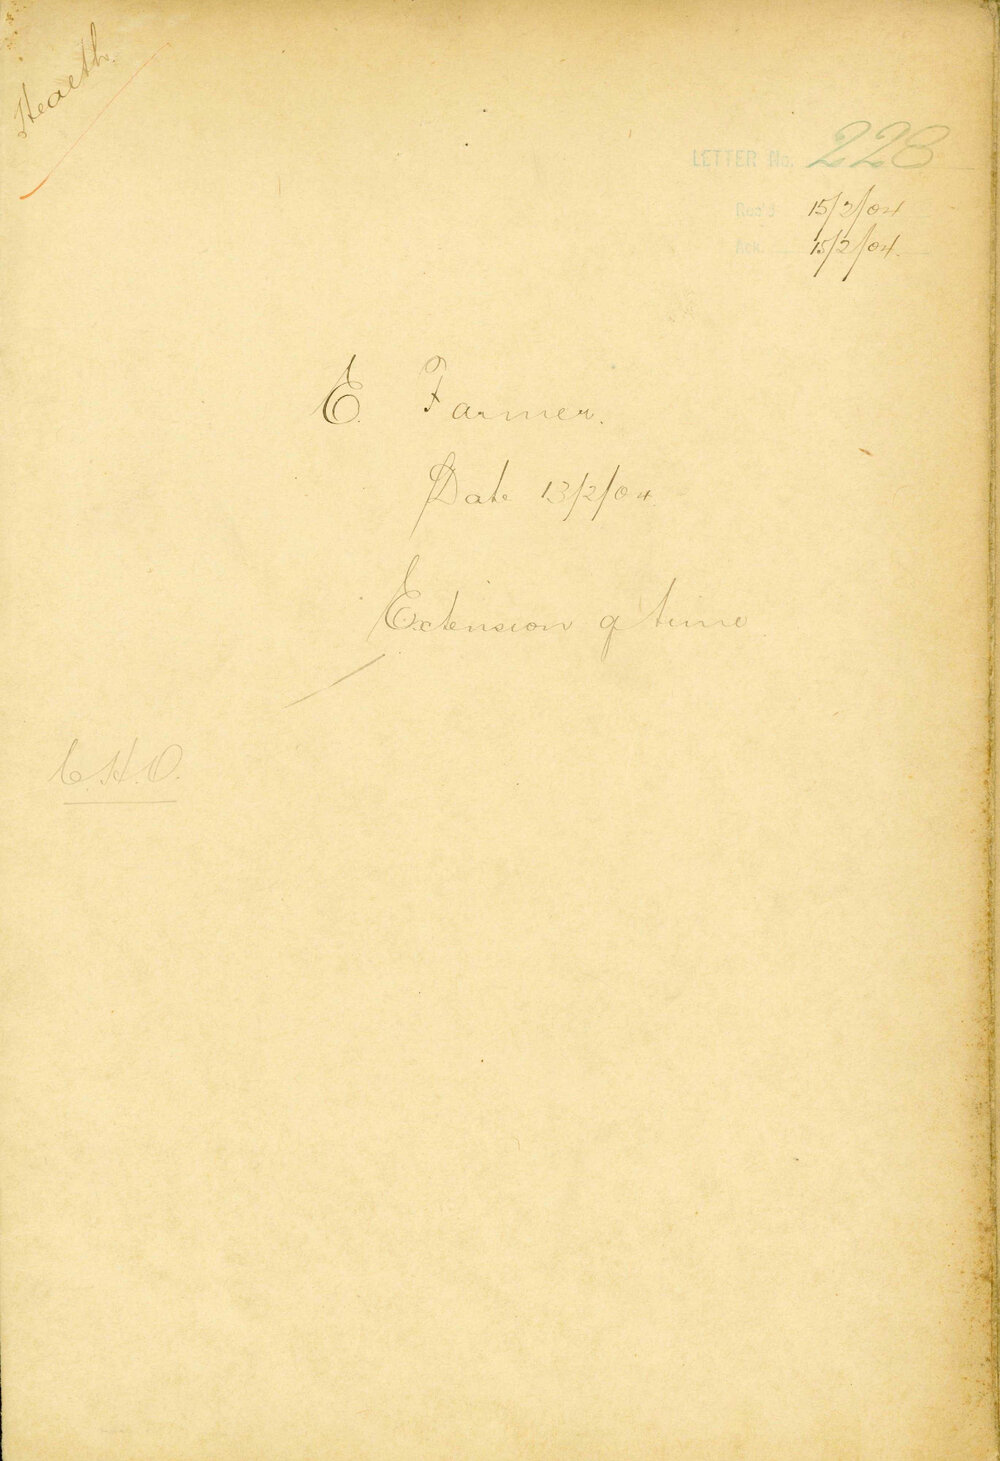 Health.
LETTER No. 228
Rec'd 15/2/04
Ack. 15/2/04.
E. Farmer.
Date 13/2/04
Extension of time
C.H.O.